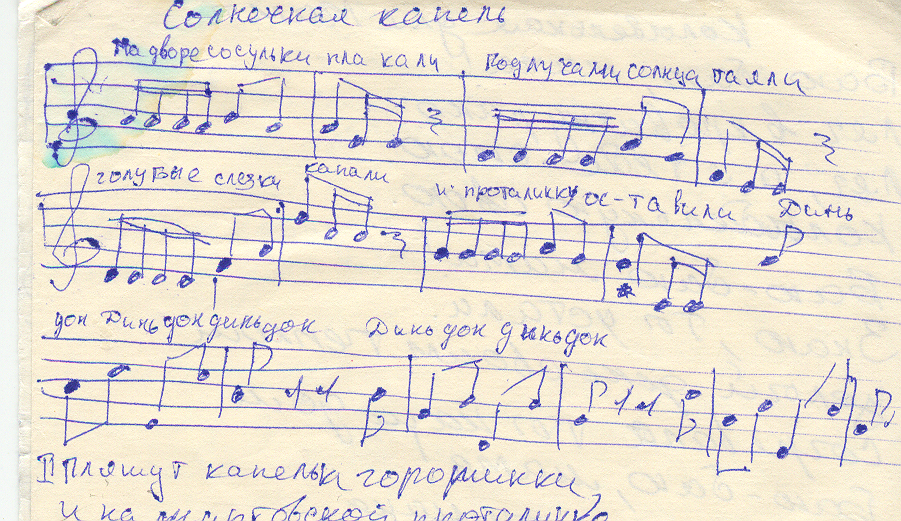 Солнечная капель
На дворе сосульки плакали Под лучами солнца таяли
голубые слезки капали и проталинку ос-тавили Динь
дон Динь дон динь дон Динь дон динь дон
II Пляшут капельки горошинки,
и на мартовской проталинке